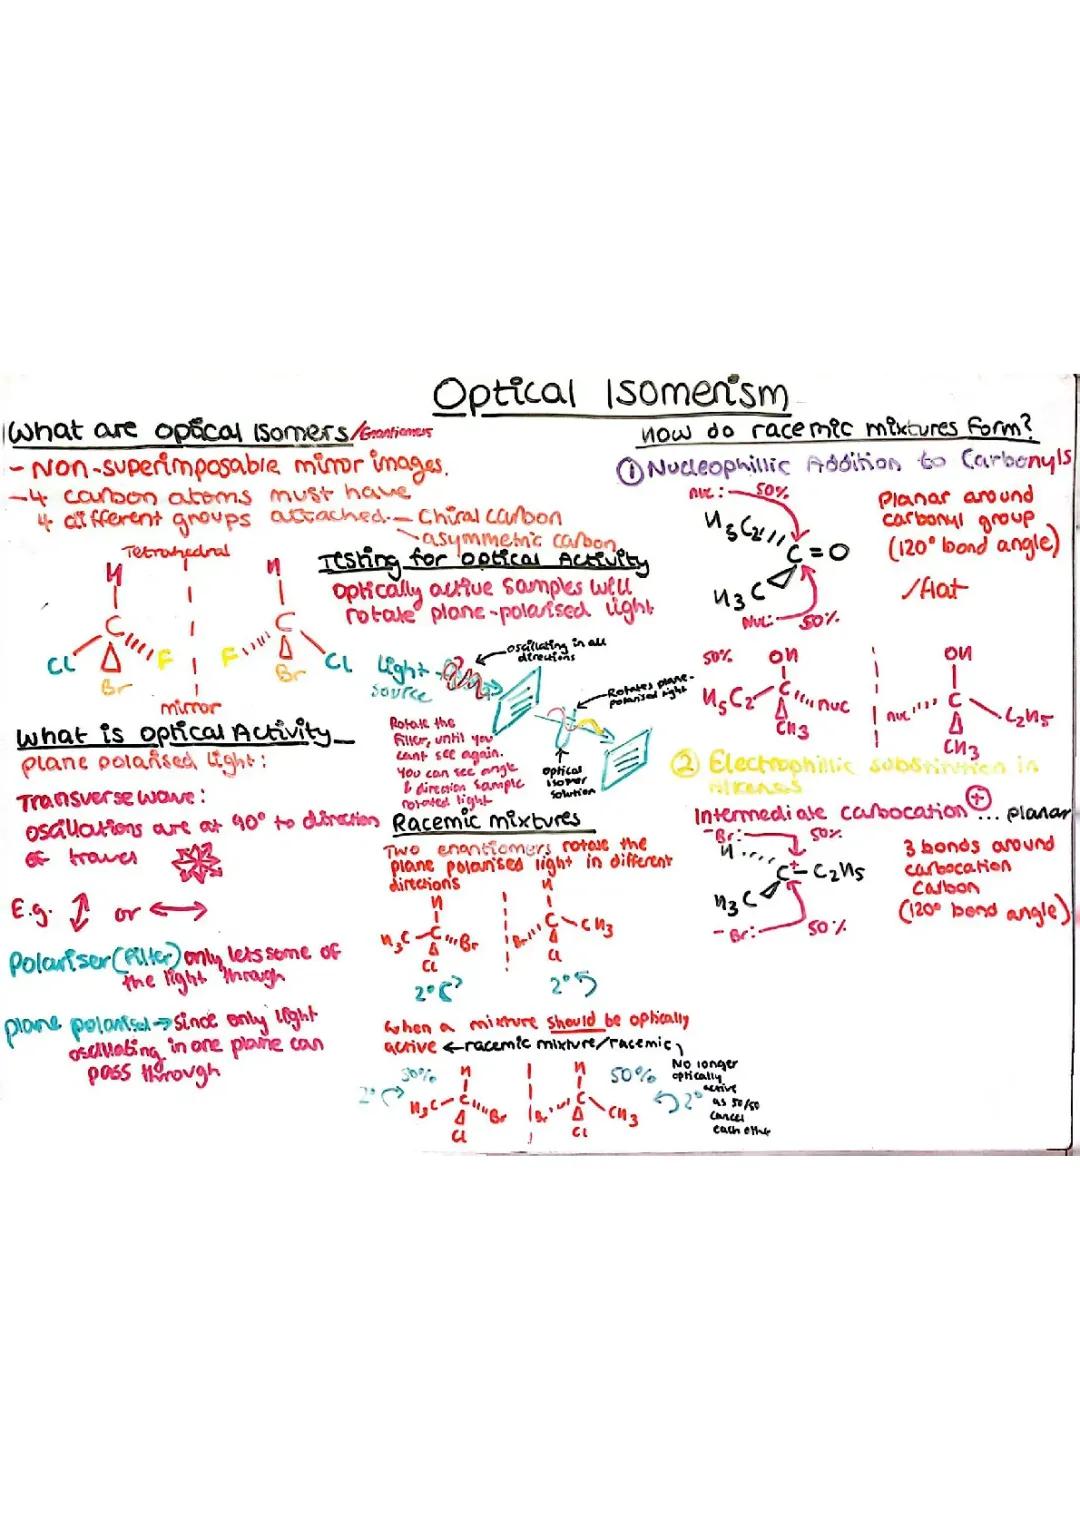 Optical Isomerism
What are optical isomers/Enantiomers
- Non-superimposable mirror images.
- 4 carbon atoms must have
4 different groups attached. - Chiral carbon
asymmetric carbon
Tetrahedral
H
H
C
C
Cl
F
F
Cl
Br
Br
mirror
What is optical Activity
Plane polarised light:
Transverse wave:
oscillations are at 90° to direction
of travel
E.g. or
Polariser (filter) only lets some of
the light through
plane polarised → since only light
oscillating in one plane can
pass through
Testing for optical Activity
Optically active samples will
rotate plane-polarised light
oscillating in all
directions
Light
source
Rotates plane-
polarised light
Rotate the
filter, until you
cant see again.
You can see angle
& direction sample
rotated light
optical
isomer
solution
Racemic mixtures
Two enantiomers rotate the
plane polarised light in different
directions
H
H
H3C C Br
Br C CH3
Cl
Cl
2°
2°
when a mixture should be optically
active ← racemic mixture/racemic
50%
H
H
50%
2°
H3C C Br
Br C CH3
2°
Cl
Cl
No longer
optically
active
as 50/50
cancel
each other
How do racemic mixtures form?
① Nucleophillic Addition to Carbonyls
Nuc: 50%
H5C2
C=O
H3C
Nuc: 50%
Planar around
carbonyl group
(120° bond angle)
/flat
50%
OH
OH
H5C2 C nuc
nuc C C2H5
CH3
CH3
② Electrophillic substitution in
Alkenes
Intermediate carbocation + ... planar
-Br: 50%
H
C+ - C2H5
H3C
-Br: 50%
3 bonds around
carbocation
carbon
(120° bond angle)